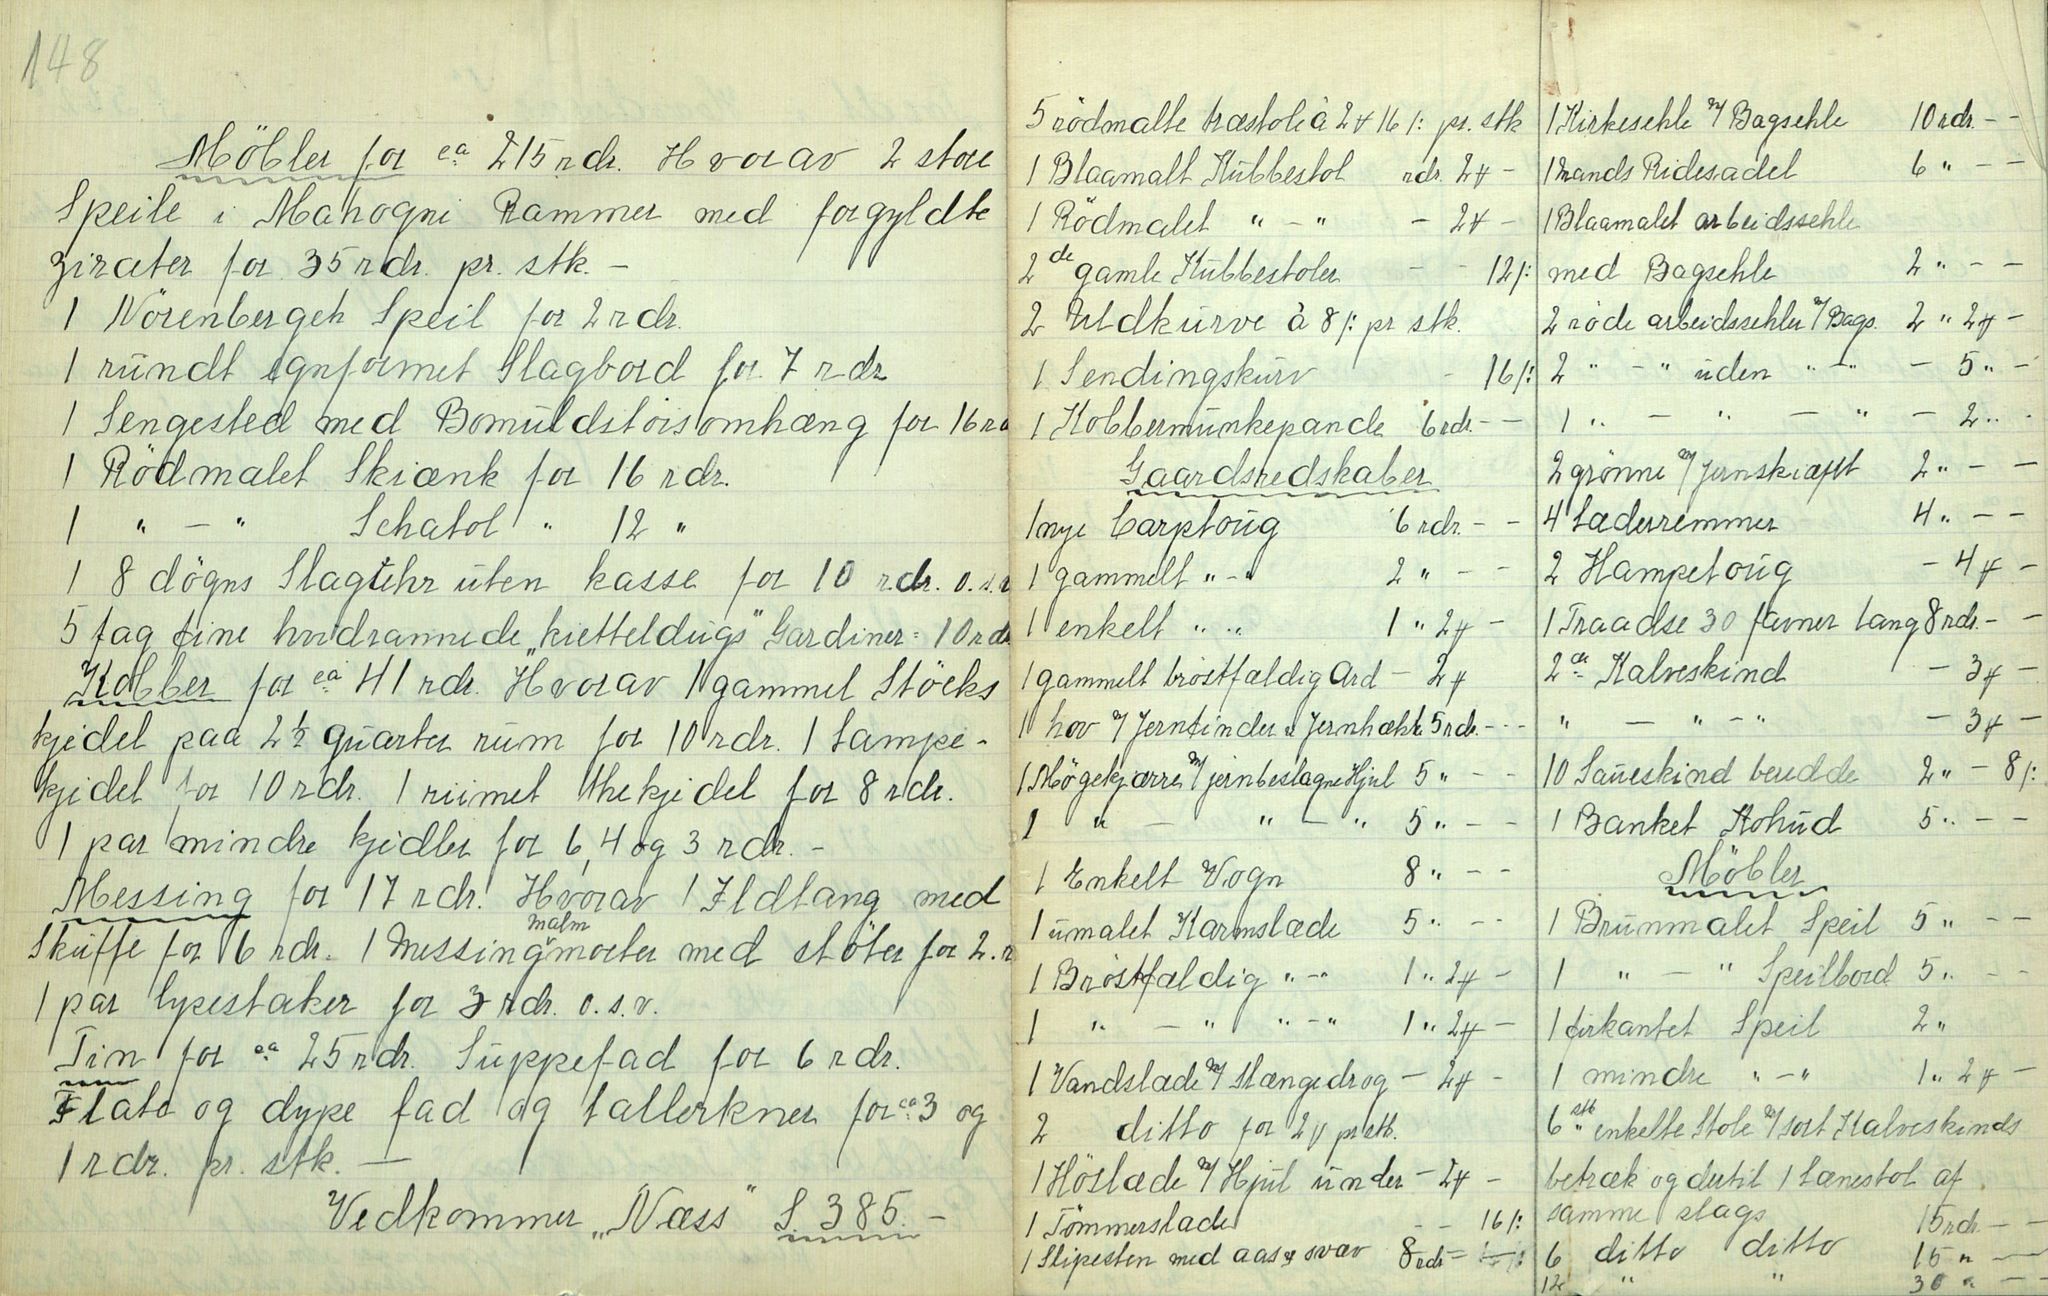 148
Möbler for ca 215 rdr. Hvorav 2 store
Speile i Mahogni Rammer med forgyldte
zirater for 35 rdr. pr. stk. –
1 Nörenbergeh Speil for 2 rdr.
1 rundt egnformet Slagbord for 7 rdr
1 Sengested med Bomuldstöisomhæng for 16 rd
1 Rödmalet Skiænk for 16 rdr.
1 " – " Schatol " 12 "
1 8 dögns Slaguhr uten kasse for 10 rdr. o.s.v
5 fag fine hvidrannede „kietteldugs" Gardiner = 10 rdr
Kobber for ca 41 rdr. Hvorav 1 gammel Stöcks
kjedel paa 2½ quarter rum for 10 rdr. 1 Lampe-
kjedel for 10 rdr. 1 riimet thekjedel for 8 rdr.
1 par mindre kjedler for 6, 4 og 3 rdr. –
Messing for 17 rdr. Hvorav 1 Ildtang med
Skuffe for 6 rdr. 1 Messing malm morter med stöter for 2. r
1 par lysestaker for 3 rdr. o.s.v.
Tin for ca 25 rdr. Suppefad for 6 rdr.
Flate og dype fad og tallerkner for ca 3 og
1 rdr. pr. stk. —
Vedkommer „Næss" S. 385. –
5 rödmalte træstole à 2 ⅌ 16 /: pr. stk
1 Blaamalt Kubbestol rdr. 2 ⅌ –
1 Rödmalet " – " – 2 ⅌ –
2 de gamle Kubbestoler – – 12 /:
2 Uldkurve à 8 /: pr stk.
1 Sendingskurv – 16 /:
1 Kobbermunkepande 6 rdr. – –
Gaardsredskaber
1 nye Carptoug 6 rdr. – –
1 gammelt " – " 2 " – –
1 enkelt " " 1 " 2 ⅌ –
1 gammelt bröstfældig Ard – 2 ⅌
1 hov m/ Jerntinder & Jernhækte 5 rdr. – – –
1 Mögekjærre m/ jernbeslagne Hjul 5 " – –
1 " – " – " 5 " – –
1 Enkelt Vogn 8 " – –
1 umalet Karmslæde 5 " – –
1 Bröstfældig " – " 1 " 2 ⅌ –
1 " – " " – " 1 " 2 ⅌ –
1 Vandslæde m/ Slængedrog – 2 ⅌ –
2 ditto for 2 ⅌ pr stk.
1 Höslæde m/ Hjul under – 2 ⅌ –
1 Tömmerslæde – – 16 /:
1 Slipesten med aas & svæv 8 rdr
1 Kirkesehle m/ Bagsehle 10 rdr. – –
1 Mands Ridesadel 6 " – –
1 Blaamalet arbeidssehle
med Bagsehle 2 " – –
2 röde arbeidssehler m/ Bags. 2 " 2 ⅌ –
2 " – " uden " – " – 5 " –
1 " – " – " – 2 "
2 grönne m/ Jernskiæft 2 " – –
4 Læderremmer 4 " – –
2 Hampetoug – 4 ⅌ –
1 Traadse 30 favner lang 8 rdr. – –
2 de Kalveskind – 3 ⅌ –
" – " – " – 3 ⅌ –
10 Saueskind beredde 2 " – 8 /:
1 Banket Kohud 5 " – –
Möbler
1 Brunmalet Speil 5 " – –
1 " – " Speilbord 5 " – –
1 firkantet Speil 2 "
1 mindre " – " 1 " 2 ⅌ –
6 stk enkelte Stole m/ sort Kalveskinds
betræk og dertil 1 Lænestol af
samme slags 15 rdr – –
6 ditto ditto 15 " —
12 " " 30 " – –